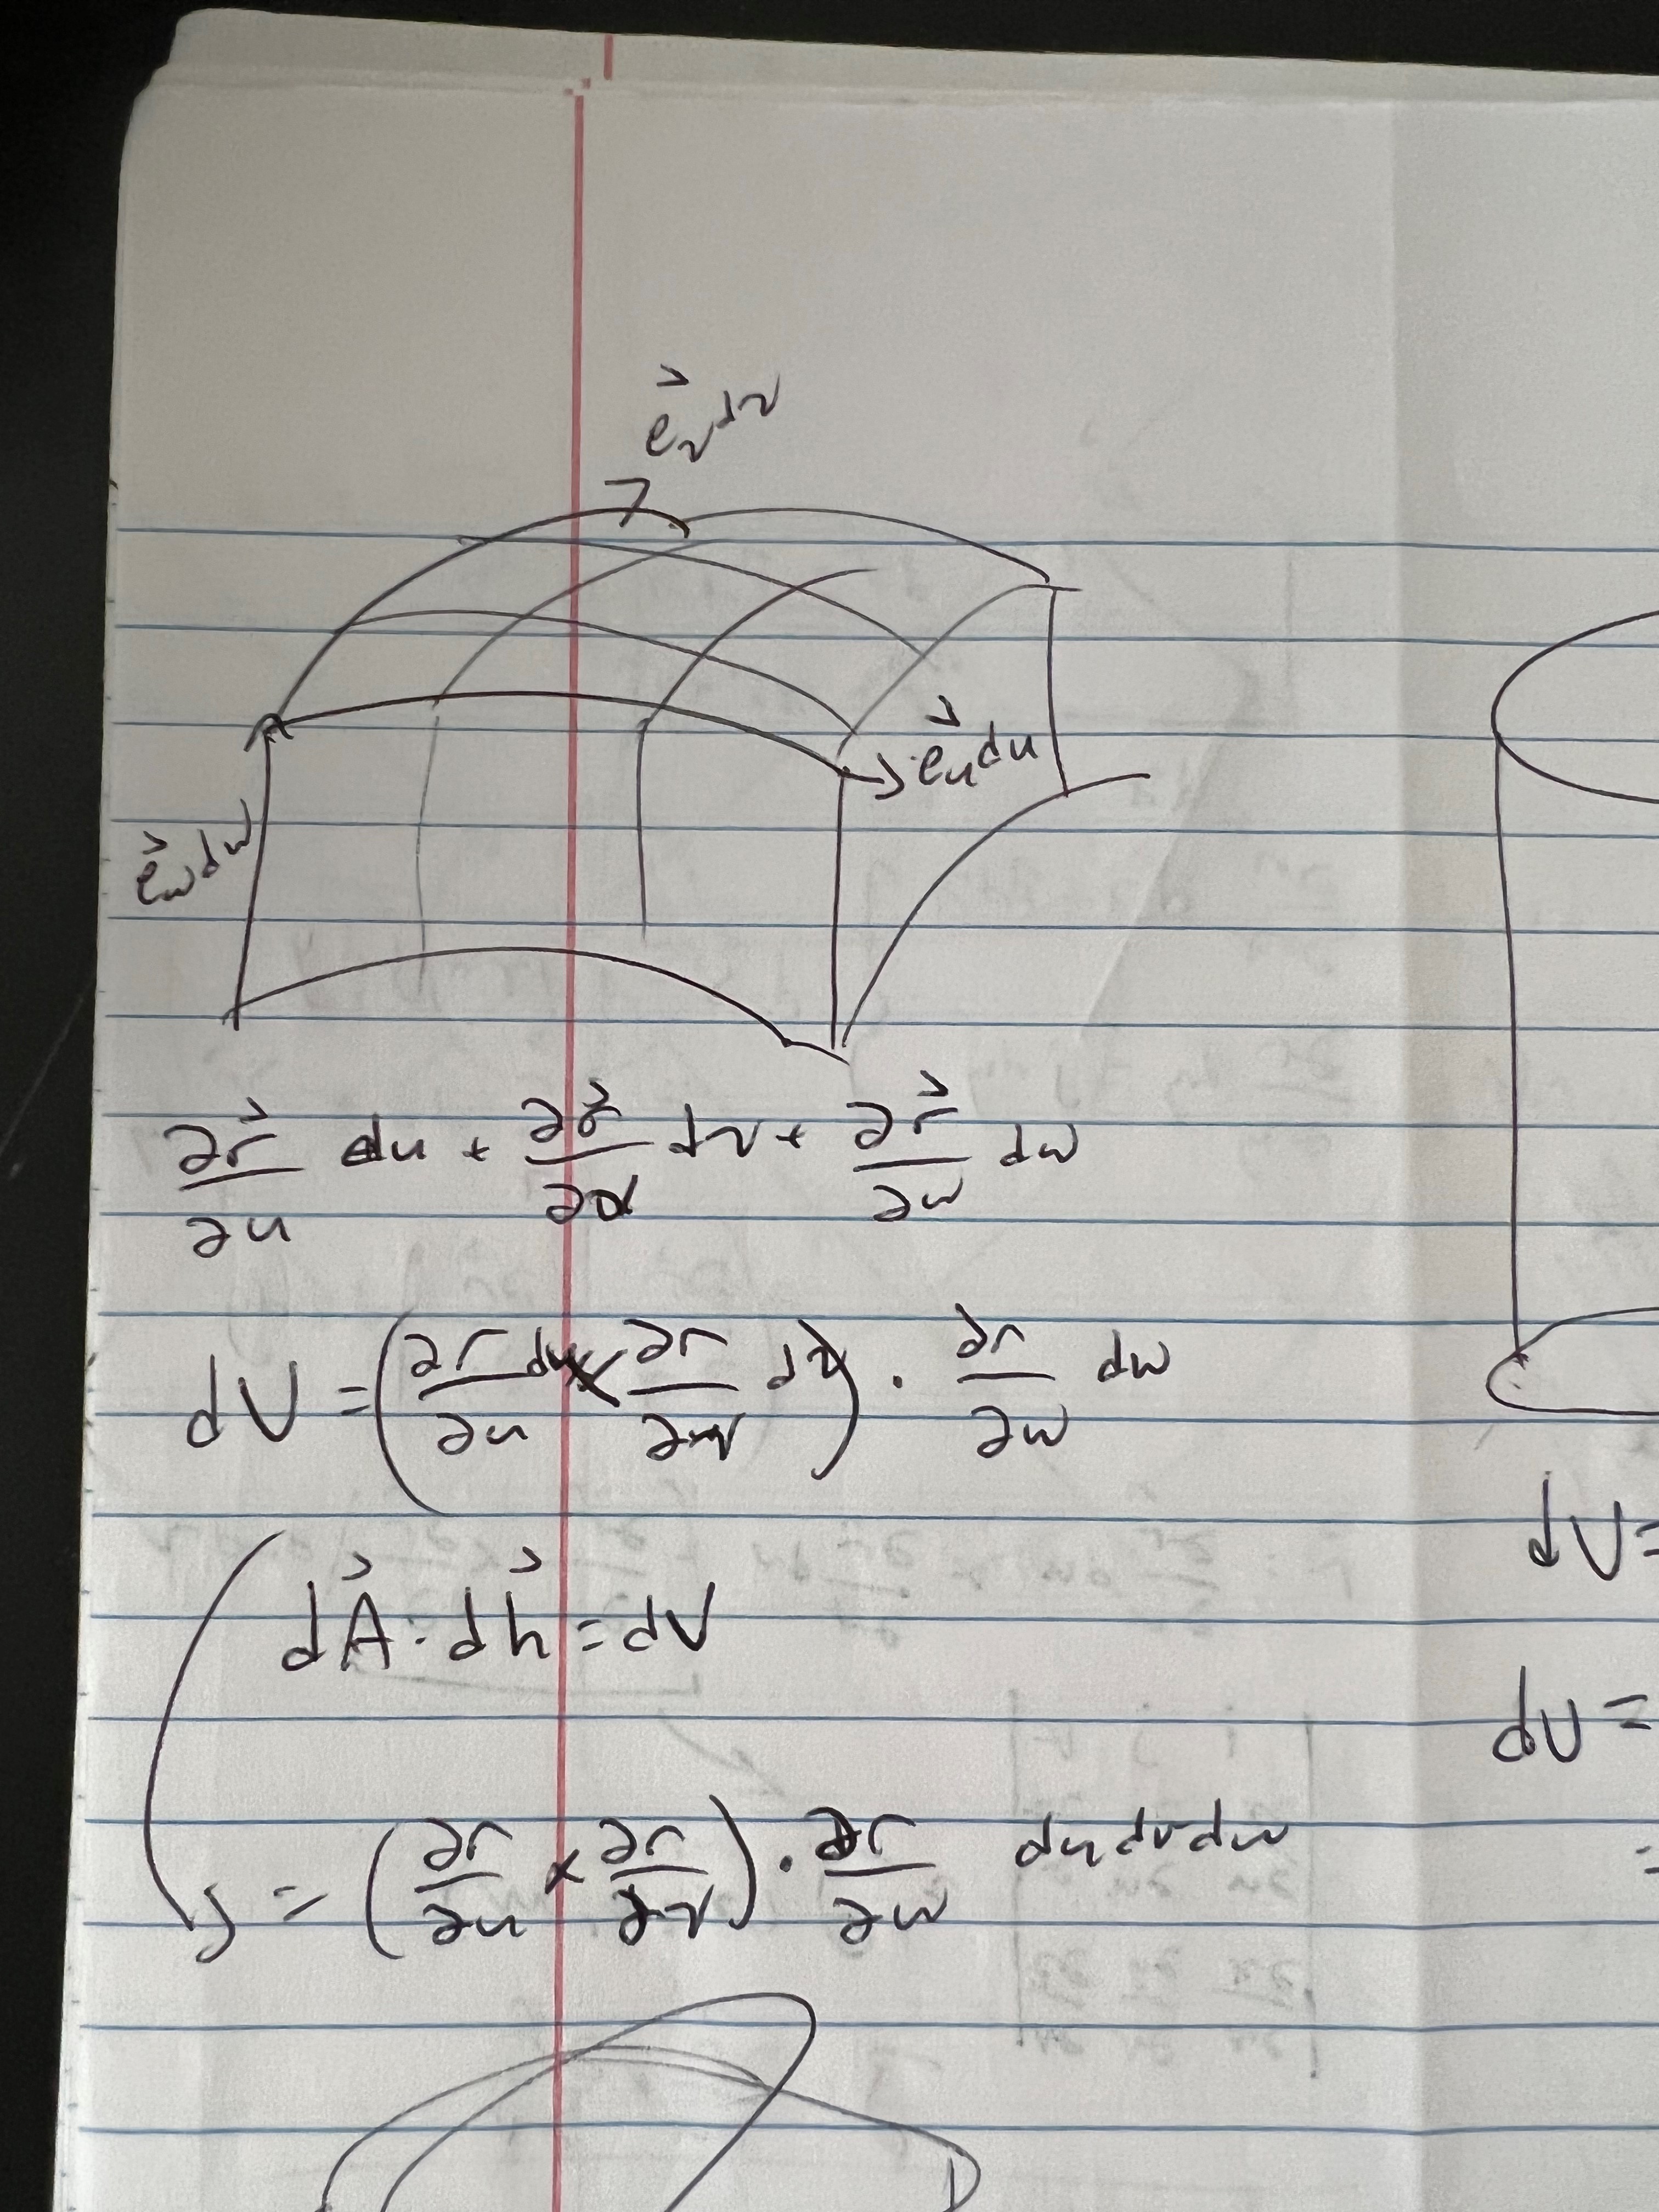 e⃗ᵥdv
e⃗ᵤdu
e⃗_w dw
∂r⃗/∂u du + ∂r⃗/∂v dv + ∂r⃗/∂w dw
dV = (∂r/∂u du × ∂r/∂v dv) · ∂r/∂w dw
dA⃗ · dh⃗ = dV
= (∂r/∂u × ∂r/∂v) · ∂r/∂w du dv dw
dV=
dV =
=